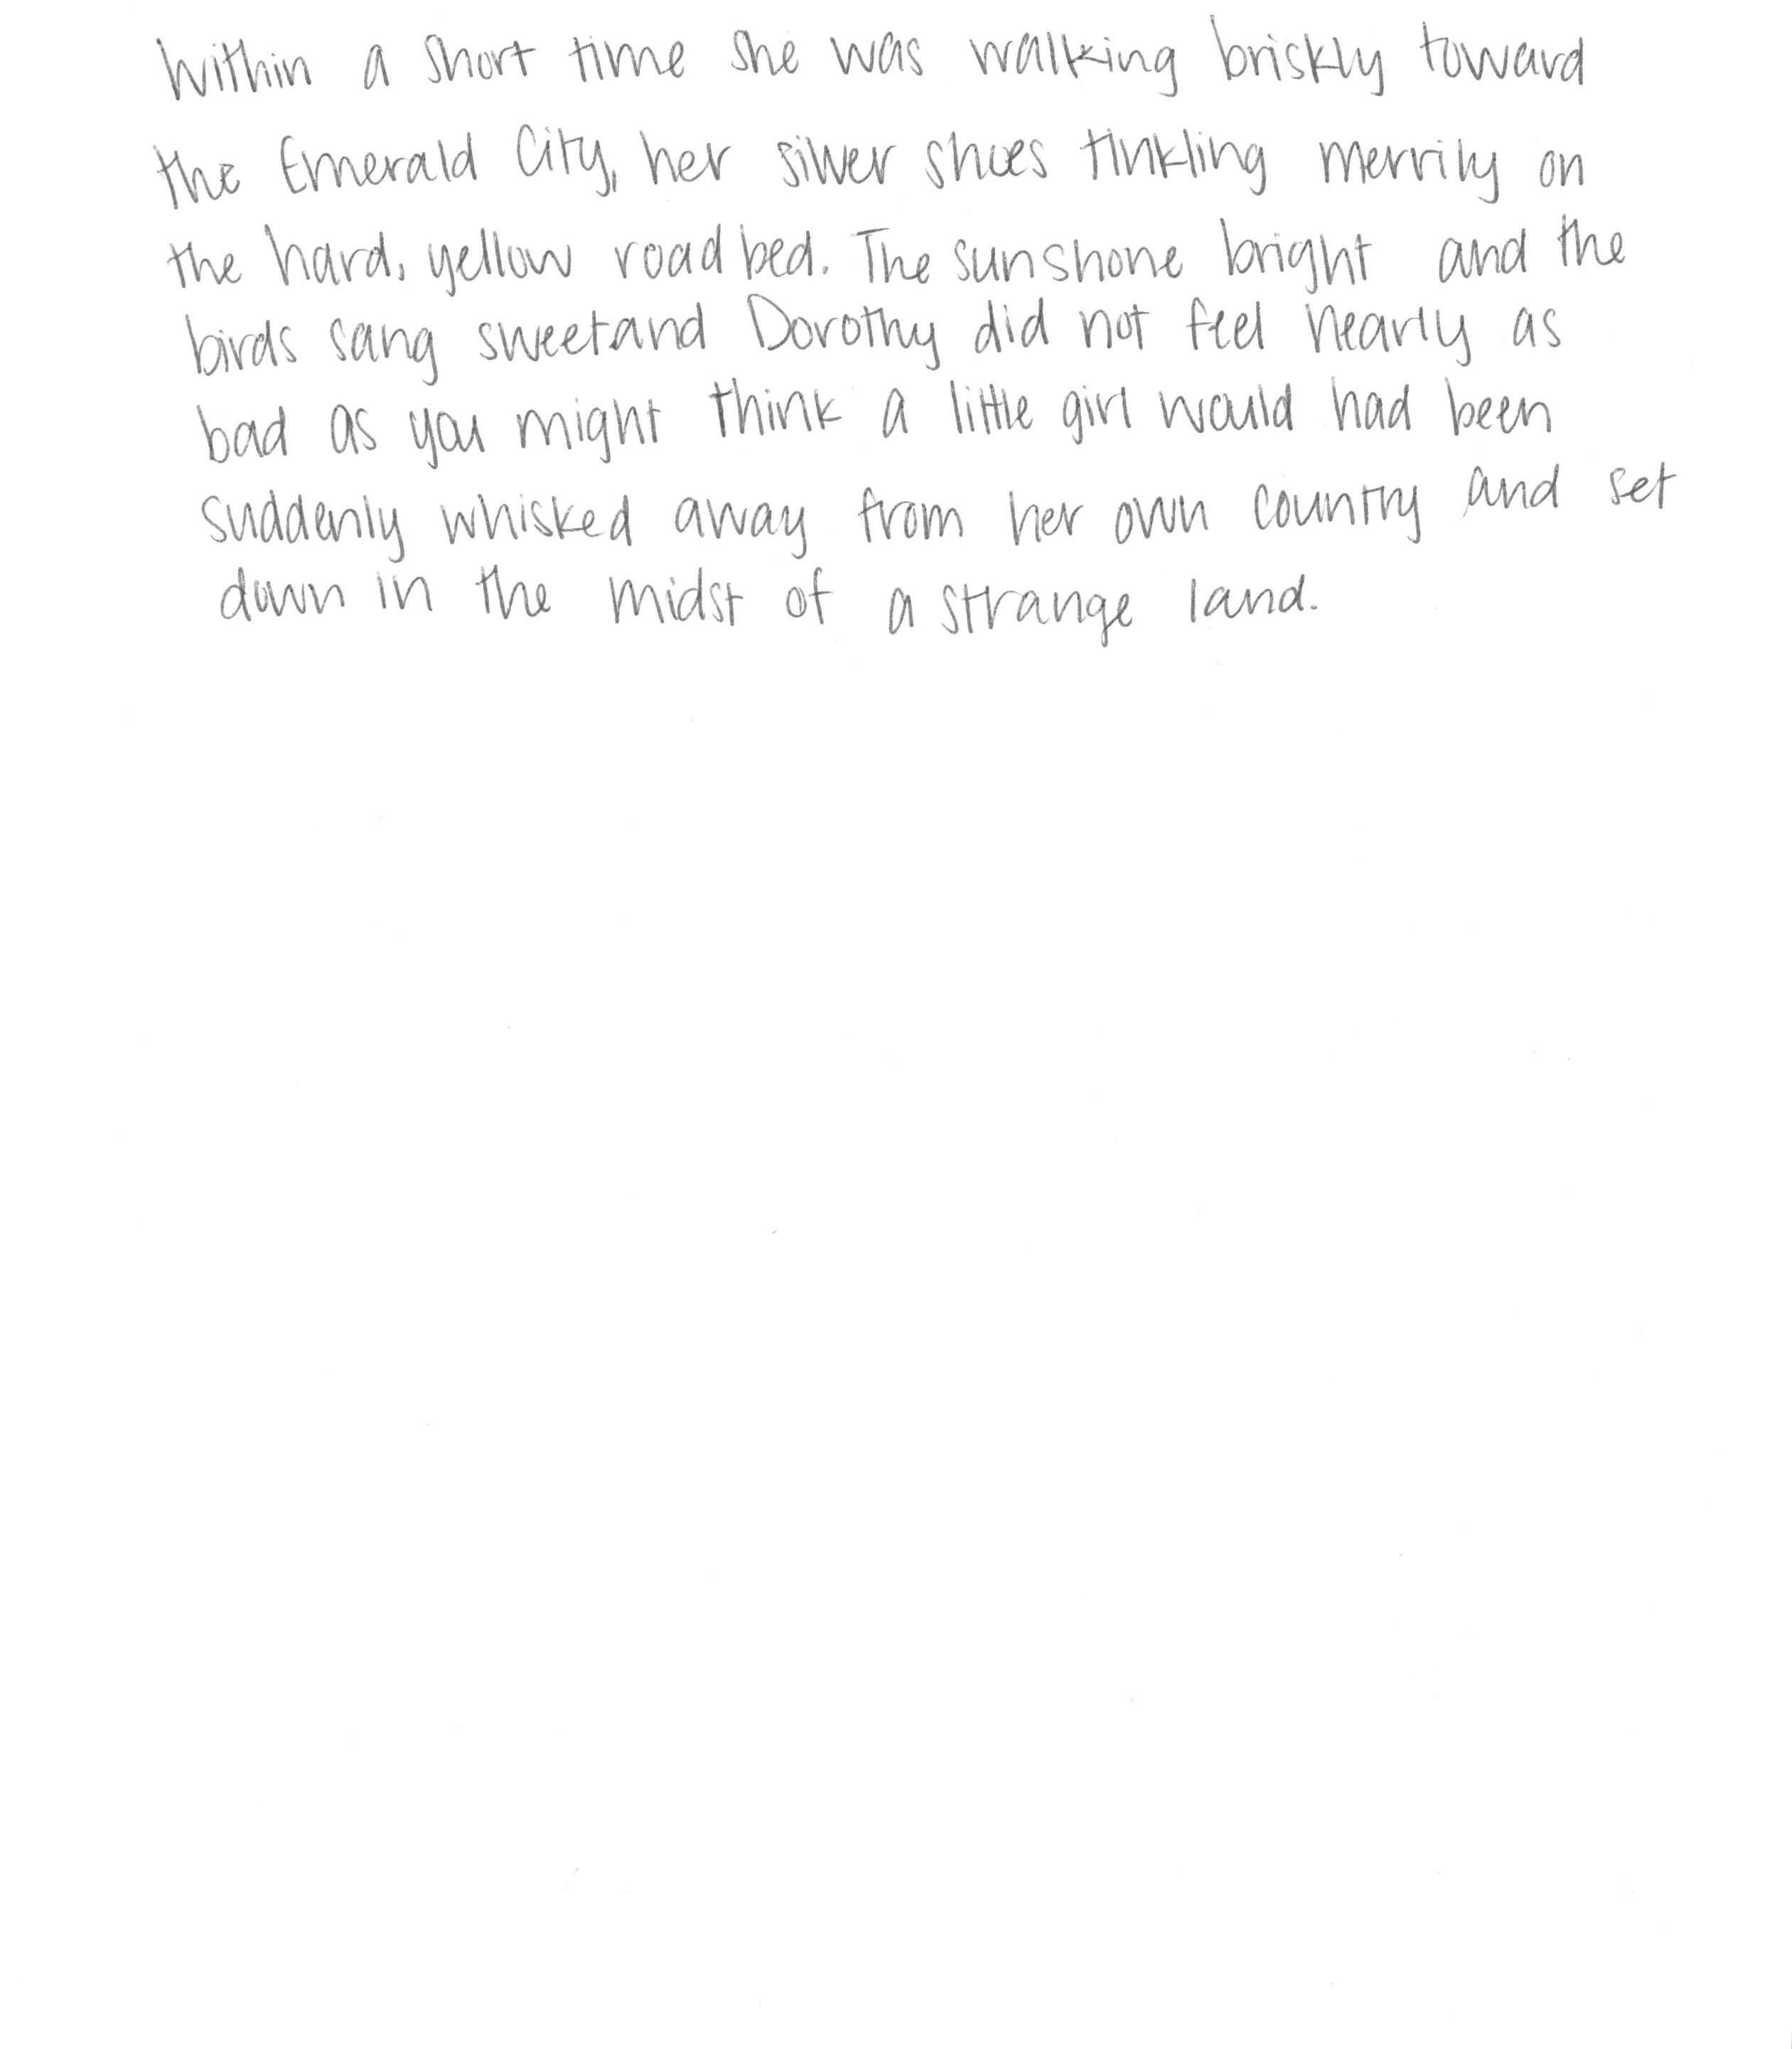 Within a short time she was walking briskly toward
the Emerald City, her silver shoes tinkling merrily on
the hard, yellow road bed. The sun shone bright and the
birds sang sweet and Dorothy did not feel nearly as
bad as you might think a little girl would had been
suddenly whisked away from her own country and set
down in the midst of a strange land.